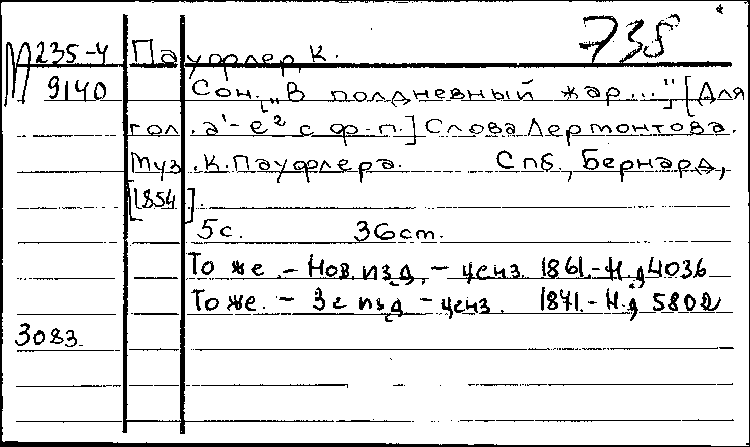 738
М 235-4 Пауфлер, К.
9140 Сон. „В полдневный жар..." [Для
гол. a¹-e² с ф-п.] Слова Лермонтова.
Муз. К. Пауфлера. Спб., Бернард,
[1854].
5с. 36ст.
То же. - Нов. изд. - ценз. 1861. - Н.д. 4036
То же. - 3е изд - ценз. 1871. - Н.д 5802
3083